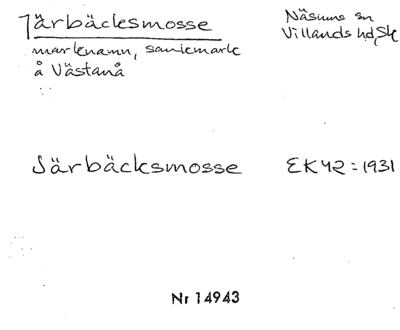 Järbäcksmosse
marknamn, saniemark
å Västanå
Näsums sn
Villands hd, Sk
Särbäcksmosse EK42=1931
Nr 14943